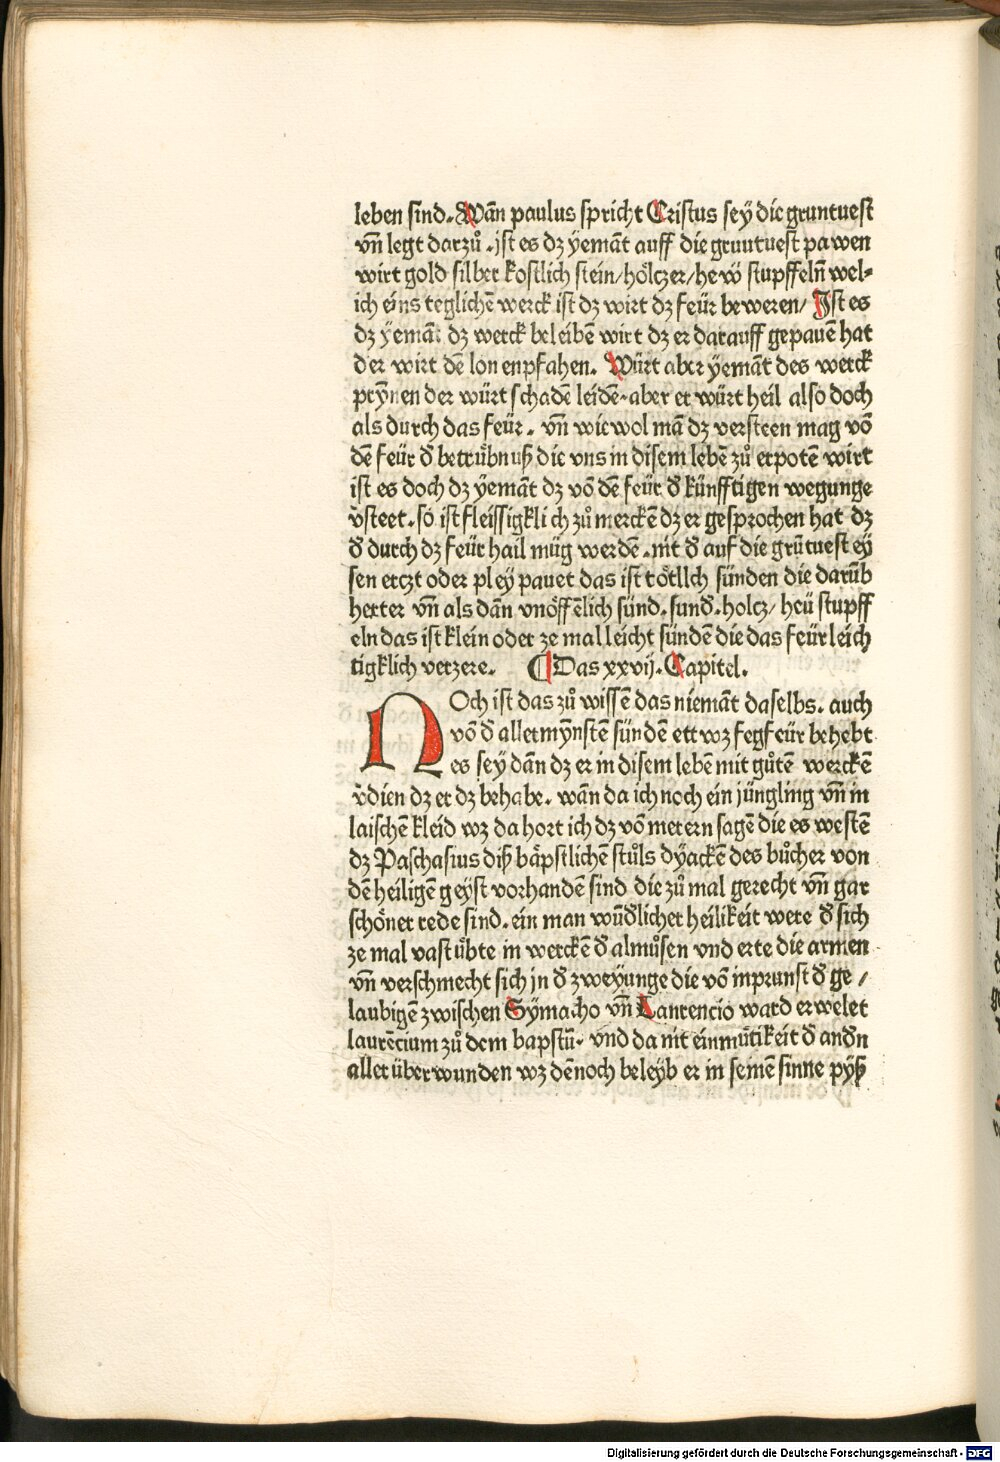 leben sind. Wān paulus spricht Cristus sey die gruntuest
vñ legt darzů. jst es dz yemāt auff die gruntuest pawen
wirt gold silber kostlich stein/ hölczer/ hew̄ stupffelñ wel⸗
ich eins teglichē werck ist dz wirt dz feür beweren/ Jst es
dz yemāt dz werck beleibē wirt dz er darauff gepauē hat
der wirt dē lon enpfahen. Würt aber yemāt des werck
prynnen der würt schadē leidē. aber er würt heil also doch
als durch das feür. vñ wiewol mā dz versteen mag vō
dē feür đ betrübnuß die vns in disem lebē zů erpotē wirt
ist es doch dz yemāt dz vō dē feür đ künfftigen wegunge
v̓steet. so ist fleissigklich zů merckē dz er gesprochen hat dz
đ durch dz feür hail müg werdē. nit đ auf die grūtuest ey
sen erczt oder pley pauet das ist tötllch sünden die darūb
herter vñ als dān vnöffēlich sünd. sunđ. holcz/ heü stupff
eln das ist klein oder ze mal leicht sündē die das feür leich
tigklich verzere. ¶ Das xxvij. Capitel.
NOch ist das zů wissē das niemāt daselbs. auch
vō đ allermynstē sündē ettwz fegfeür behebt
es sey dān dz er in disem lebē mit gůtē werckē
v̓dien dz er dz behabe. wān da ich noch ein jüngling vñ in
laischē kleid wz da hort ich dz vō merern sagē die es westē
dz Paschasius diß bäpstlichē stůls dyackē des bůcher von
dē heiligē geyst vorhandē sind die zů mal gerecht vñ gar
schöner rede sind. ein man wūđlicher heilikeit were đ sich
ze mal vast übte in werckē đ almůsen vnd erte die armen
vñ verschmecht sich jn đ zweyunge die vō inprunst đ ge /
laubigē zwischen Symacho vñ Laurencio ward erwelet
laurēcium zů dem bapstū. vnd da nit einmütikeit đ andn
aller überwunden wz dēnoch beleyb er in seinē sinne pyß
Digitalisierung gefördert durch die Deutsche Forschungsgemeinschaft - DFG